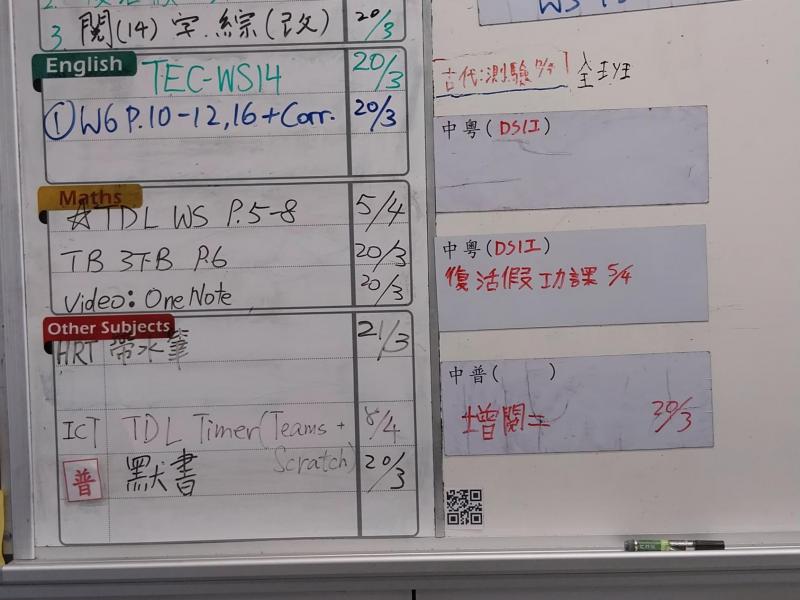 3. 閱(14) 字.綜(改) 20/3
English
TEC-WS14 20/3
① W6 P.10-12,16+Corr. 20/3
Maths
☆TDL WS P.5-8 5/4
TB 3F-B P.6 20/3
Video: OneNote 20/3
Other Subjects
HRT 帶水筆 21/3
ICT TDL Timer(Teams + Scratch) 8/4
普 默書 20/3
古代:測驗
中粵(DSII)
中粵(DSII)
復活假功課 5/4
中普( )
增閱二 20/3